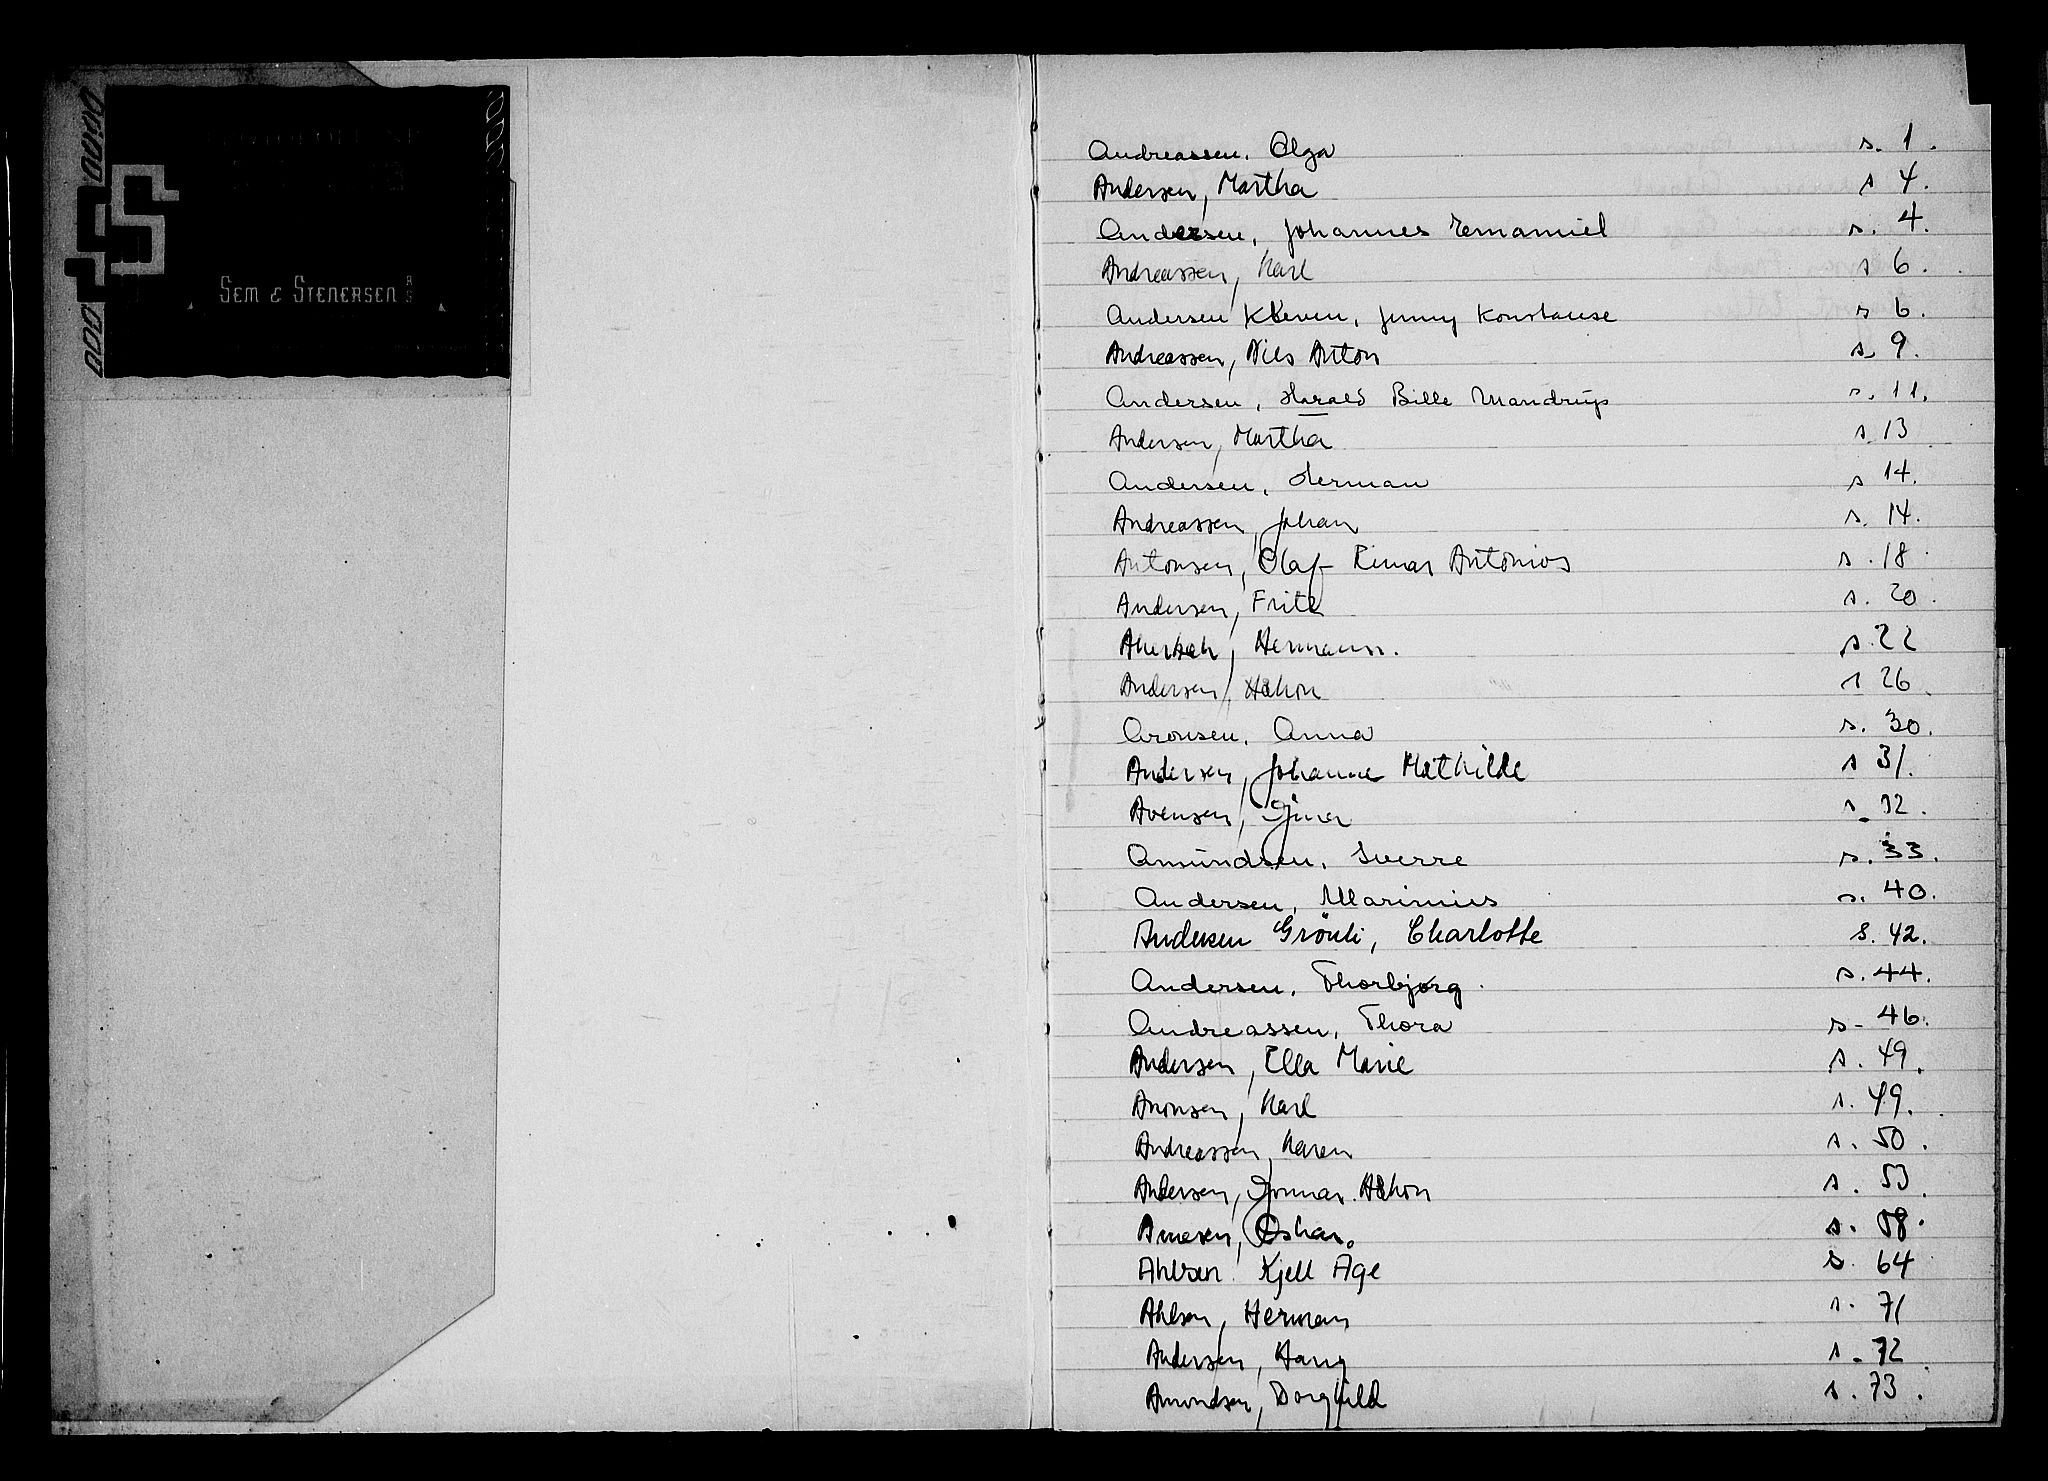 SEM & STENERSEN A/S
Andreassen, Olga s. 1.
Andersen, Martha s 4.
Andersen, Johannes Emanuel s. 4.
Andreassen, Karl s 6.
Andersen Kleven, Jenny Konstanse s 6.
Andreassen, Nils Anton s. 9.
Andersen, Harald Bille Mandrup s. 11.
Andersen, Martha s. 13
Andersen, Herman s 14.
Andreassen, Johan s. 14.
Antonsen, Olaf Einar Antonius s. 18.
Andersen, Fritz s. 20.
Hermann. s. 22
Andersen, Håkon s 26.
Aronsen, Anna s. 30.
Andersen, Johanne Mathilde s 31.
Evensen, Gina s. 32.
Amundsen, Sverre s. 33.
Andersen, Marinius s. 40.
Andersen Grönli, Charlotte s. 42.
Andersen, Thorbjørg. s. 44.
Andreassen, Thora s. 46.
Andersen, Ella Marie s. 49.
Aronsen, Karl s. 49.
Andreassen, Karen s. 50.
Andersen, Gunnar Håkon s. 53.
Arnesen, Oskar. s. 58.
Ahlsen, Kjell Åge s. 64
Ahlsen, Herman s. 71
Andersen, Harry s. 72.
Amundsen, Borghild s. 73.